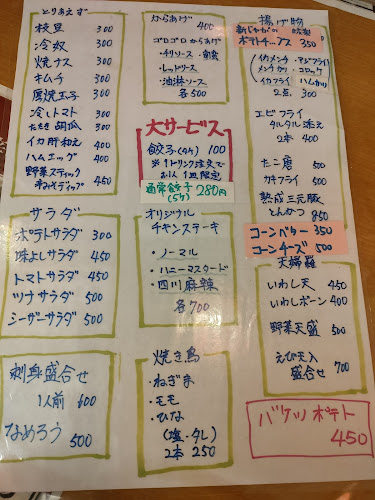 とりあえず
枝豆 300
冷奴 300
焼ナス 300
キムチ 300
厚焼玉子 300
冷しトマト 300
たたき胡瓜 300
イカ肝和え 400
ハムエッグ 400
野菜スティック
辛みそディップ 450
サラダ
ポテトサラダ 300
味よしサラダ 450
トマトサラダ 450
ツナサラダ 500
シーザーサラダ 500
刺身盛合せ
1人前 600
なめろう 500
からあげ 400
ゴロゴロからあげ
・チリソース
・レッドソース
・油淋ソース
各500
大サービス
餃子(5ケ) 100
※1ドリンク注文で
お1人1皿限定
通常餃子(5ケ) 280円
オリジナル
チキンステーキ
・ノーマル
・ハニーマスタード
・四川麻辣
各700
焼き鳥
・ねぎま
・モモ
・ひな
(塩・タレ)
2本 250
揚げ物
新じゃがの
ポテトチップス 350
イカメンチ・アジフライ
メンチカツ・コロッケ
イカフライ ハムカツ
2点 300
エビフライ
タルタル添え
2本 400
たこ唐 500
カキフライ 500
熟成三元豚
とんかつ 850
コーンバター 350
コーンチーズ 500
天婦羅
いわし天 450
いわしボーン 400
野菜天盛 500
えび天入
盛合せ 700
バケツポテト
450